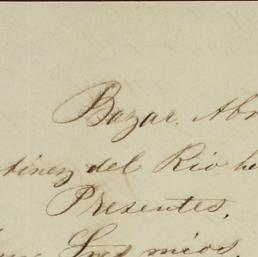 Bazar. Abr
tinez del Rio he
Presentes,
Sres mios,